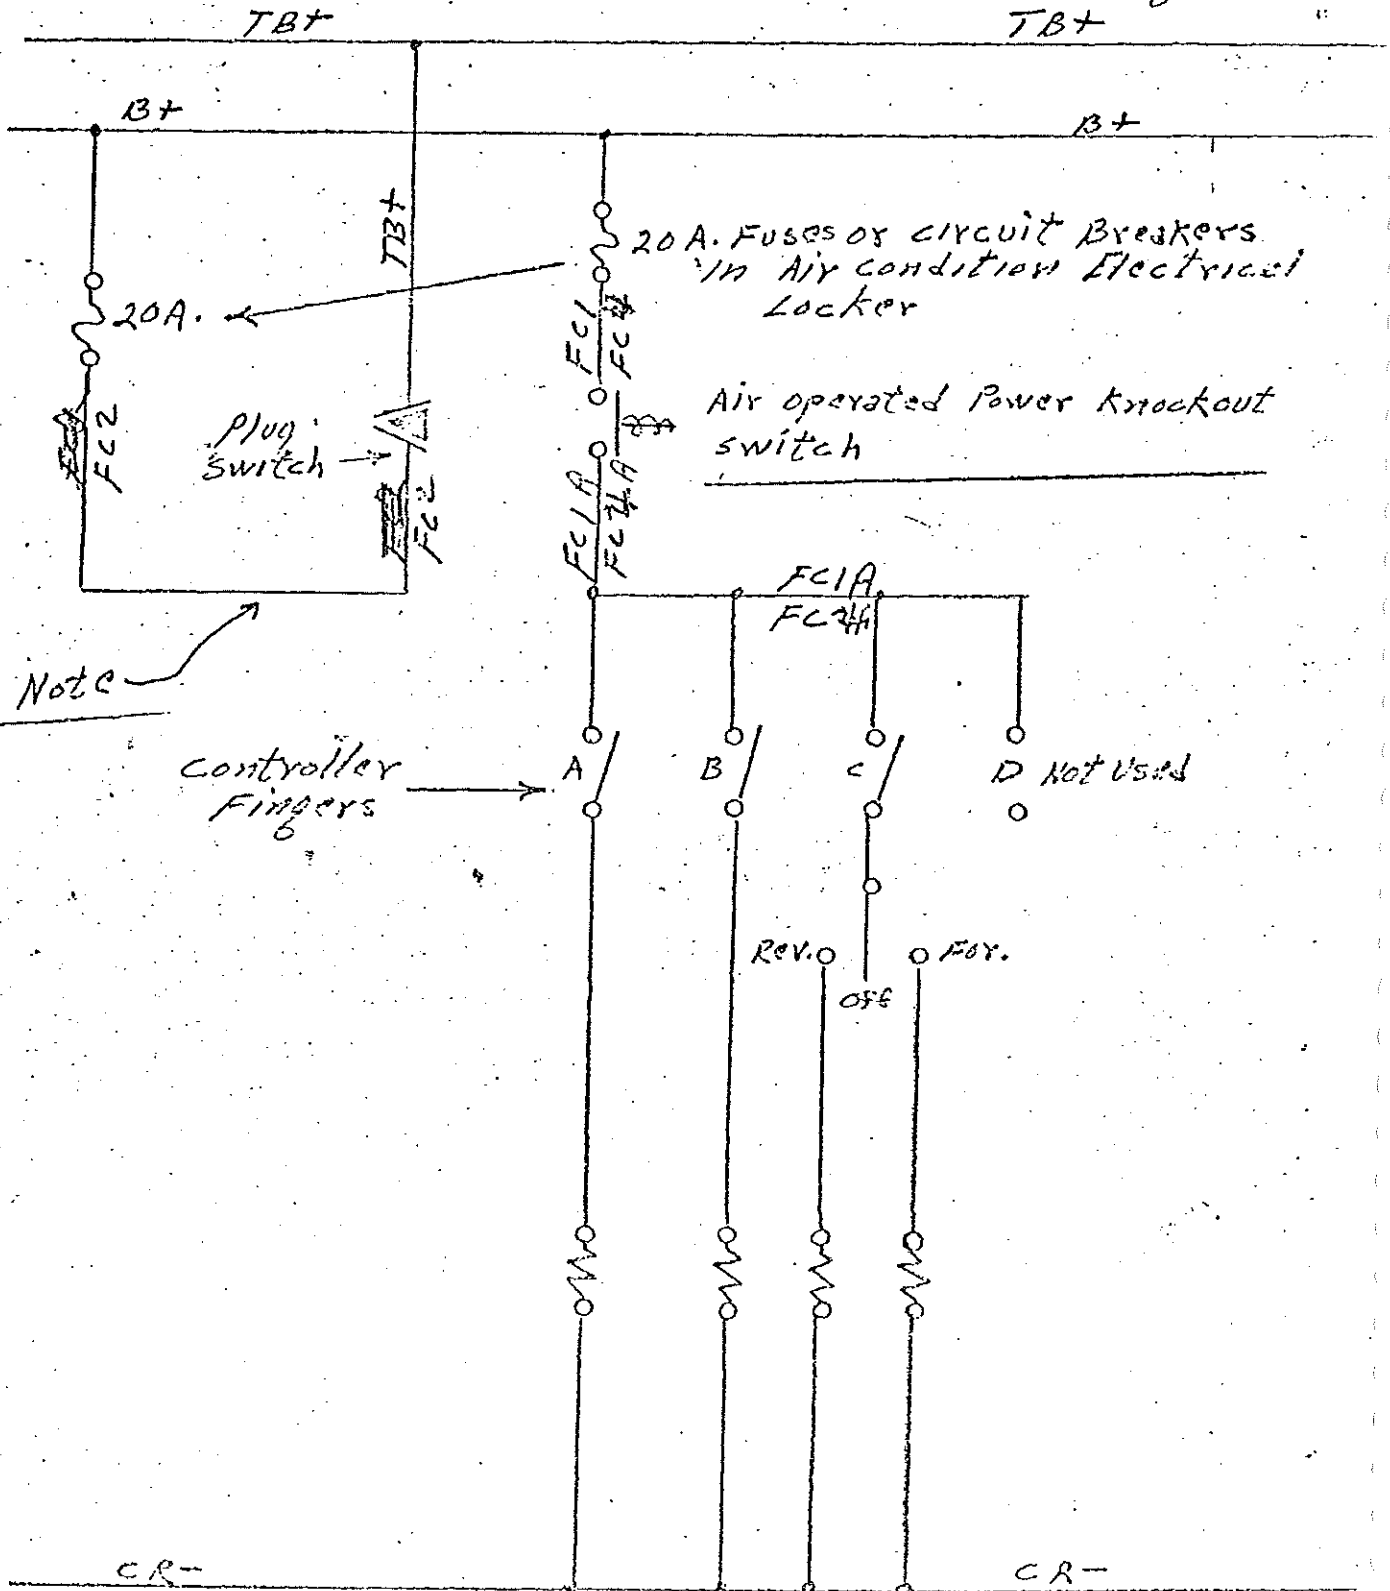 TB+
TB+
B+
B+
TB+
20 A. Fuses or circuit Breakers
in Air condition Electrical
Locker
20A.
FC1
Air operated Power Knockout
switch
FC2
Plug
switch
FC2
FC1A
FC1A
Note
Controller
Fingers
A
B
C
D Not Used
Rev.
For.
Off
CR-
CR-